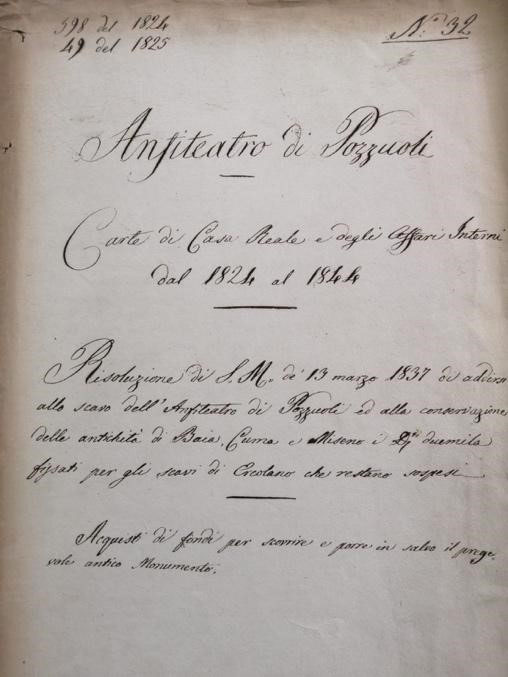 598 del 1824
49 del 1825
N.° 32
Anfiteatro di Pozzuoli
Carte di Casa Reale e degli Affari Interni
dal 1824 al 1844
Risoluzione di S. M. de' 13 marzo 1837 di addirsi
allo scavo dell'Anfiteatro di Pozzuoli ed alla conservazione
delle antichità di Baia, Cuma e Miseno i D.ti duemila
fissati per gli scavi di Ercolano che restano sospesi
Acquisti di fondi per scovrire e porre in salvo il prege-
vole antico Monumento.